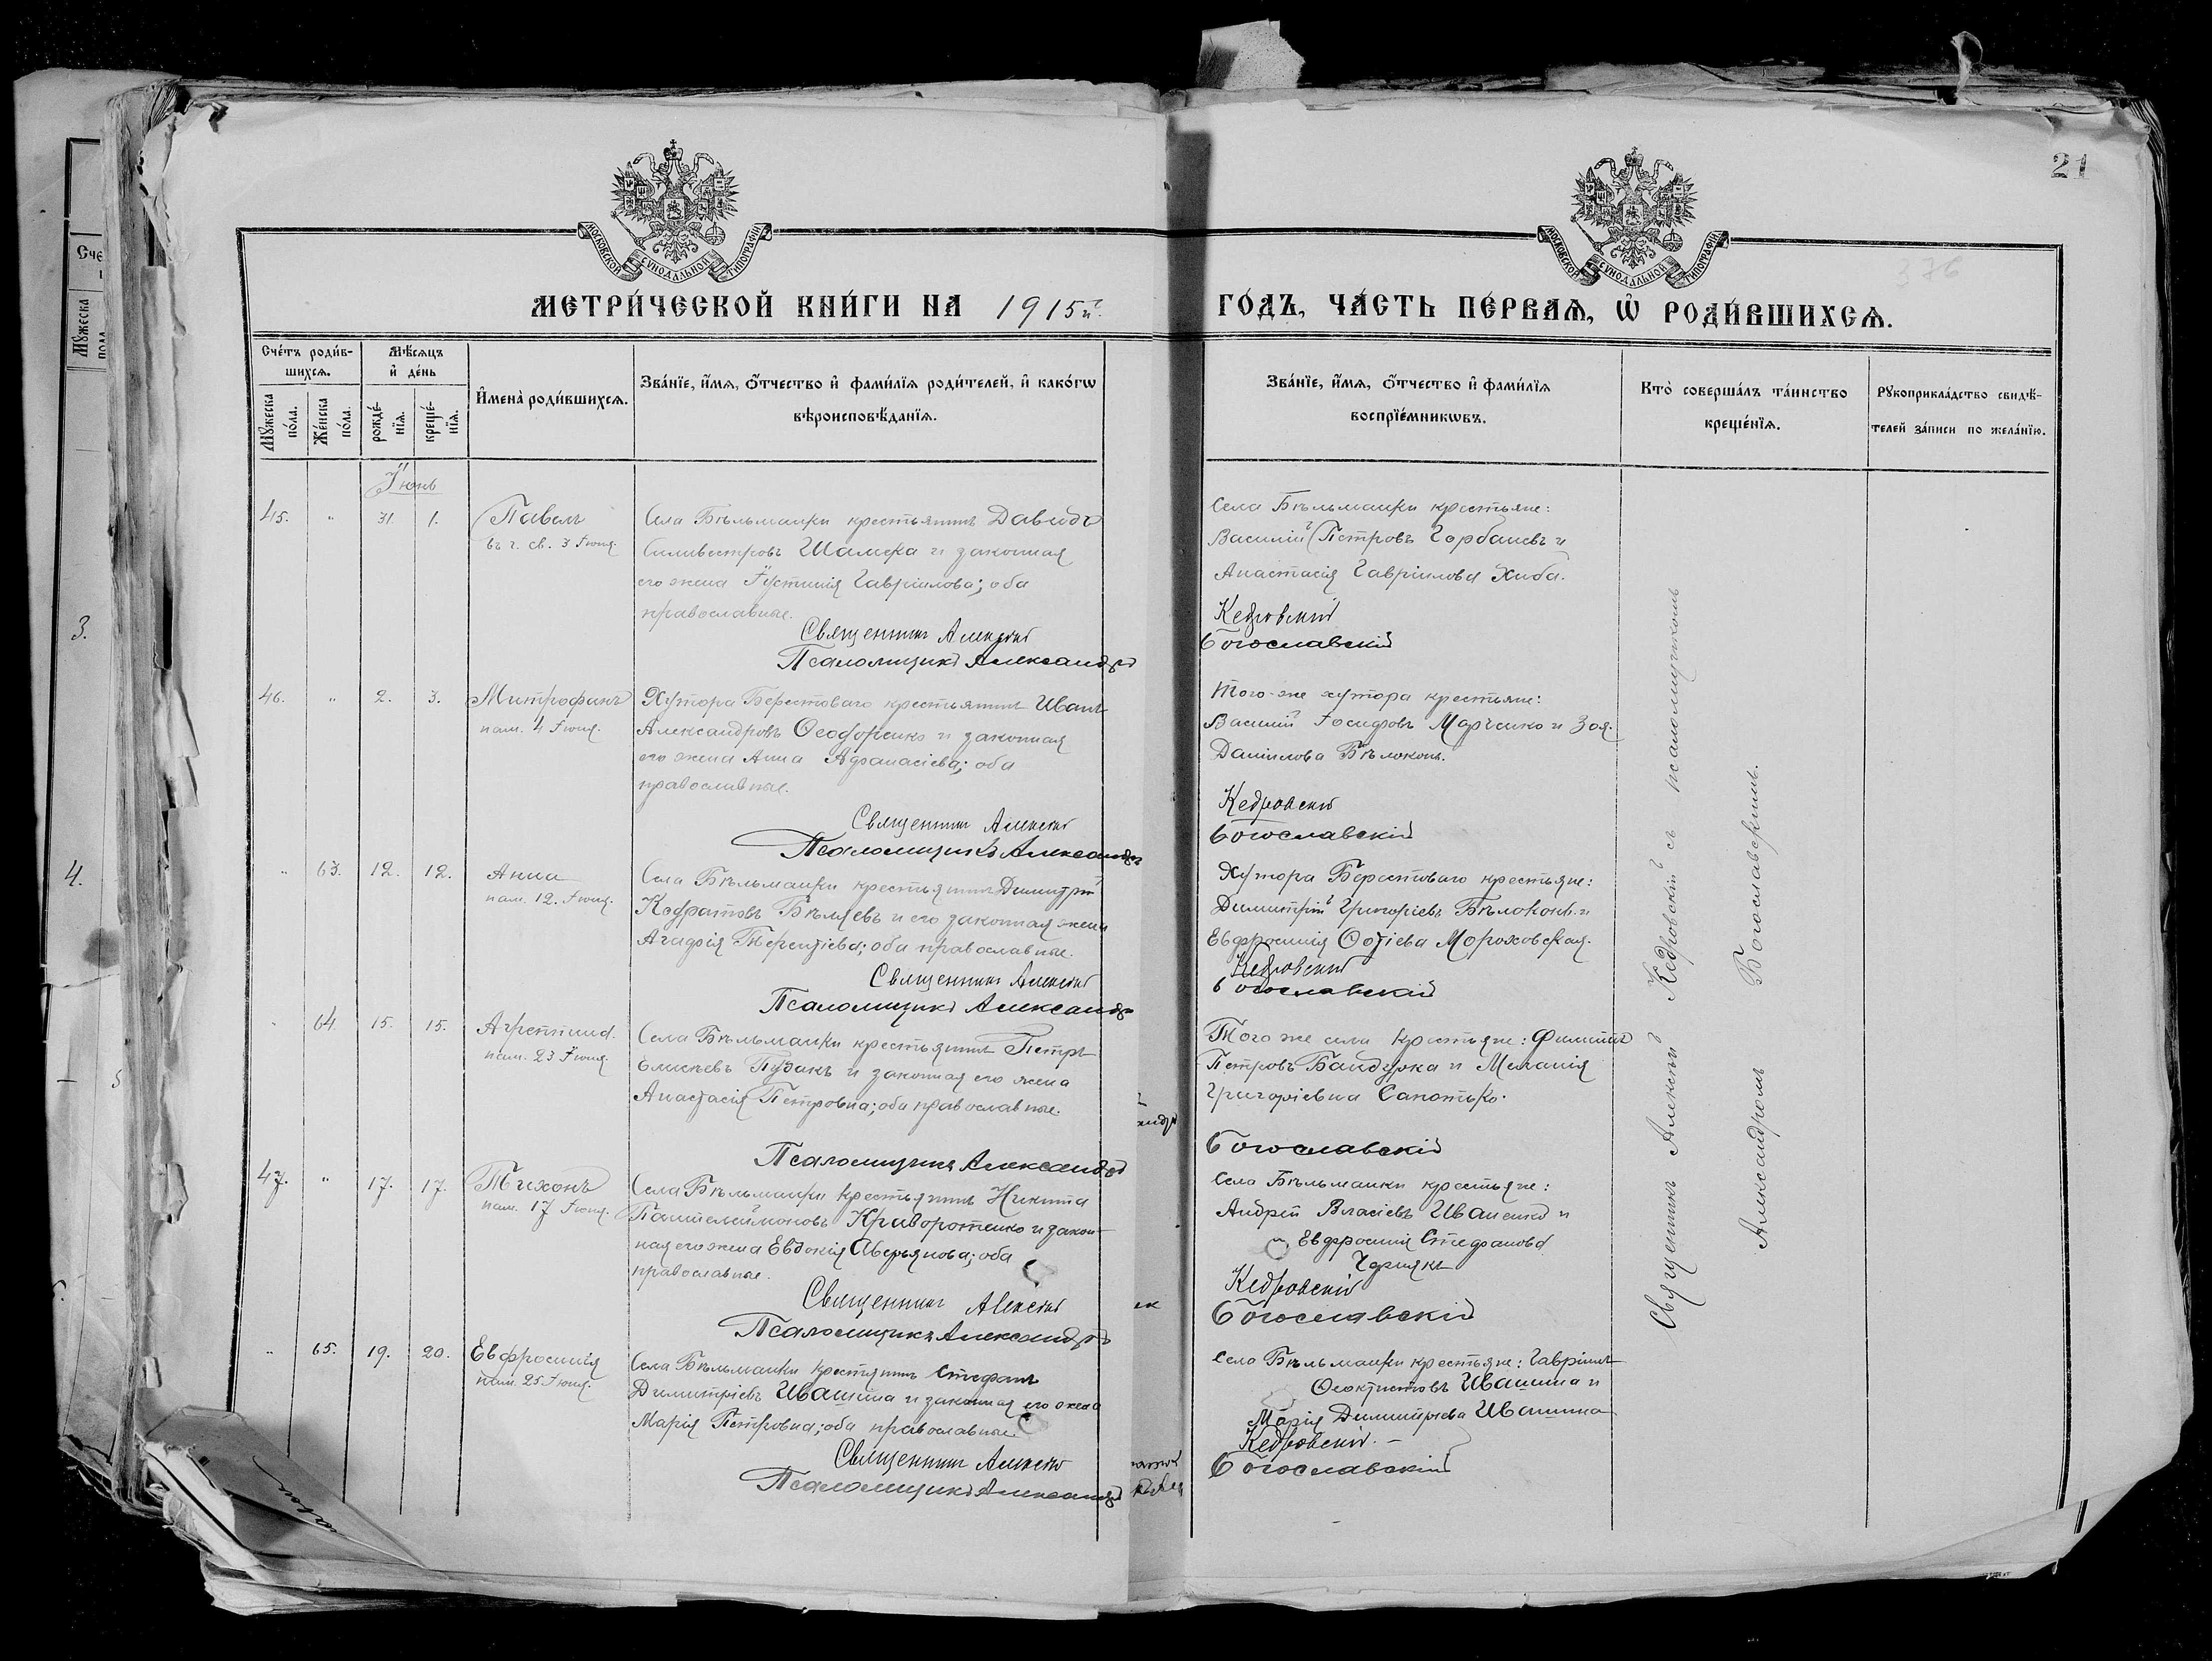 21
376
МОСКОВСКОЙ СУНОДАЛЬНОЙ ТИПОГРАФІИ
МОСКОВСКОЙ СУНОДАЛЬНОЙ ТИПОГРАФІИ
МЕТРИ́ЧЕСКОЙ КНИ́ГИ НА 1915й. ГО́ДЪ, ЧА́СТЬ ПЕ́РВАѦ, Ѡ҆ РОДИ́ВШИХСѦ.
Сче́тъ роди́в-
шихсѧ.
Мꙋ́жеска по́ла.
Же́нска по́ла.
Мѣ́сѧцъ и҆ де́нь
рожде́-нїѧ.
креще́-нїѧ.
И҆мена̀ роди́вшихсѧ.
Зва́нїе, и҆́мѧ, ѻ҆́тчество и҆ фами́лїѧ роди́телей, и҆ како́гѡ
вѣроисповѣ́данїѧ.
Зва́нїе, и҆́мѧ, ѻ҆́тчество и҆ фами́лїѧ
воспрїе́мникѡвъ.
Кто̀ соверша́лъ та́инство
креще́нїѧ.
Рꙋкоприкла́дство свидѣ́-
телей за́писи по жела́нїю.
Іюнь
45. " 31. 1. Павелъ
въ ч. св. 3 Іюня.
Села Бѣльманки крестьянинъ Давидъ
Силивестровъ Шамека и законная
его жена Іустинія Гавріилова; оба
православные.
Священникъ Алексій
Псаломщикъ Александръ
Села Бѣльманки крестьяне:
Василій Петровъ Горбачевъ и
Анастасія Гавріилова Хиба.
Кедровскій
Богославскій
46. " 2. 3. Митрофанъ
пам. 4 Іюня.
Хутора Берестоваго крестьянинъ Иванъ
Александровъ Ѳеофоренко и законная
его жена Анна Афанасіева; оба
православные.
Священникъ Алексій
Псаломщикъ Александръ
Того-же хутора крестьяне:
Василій Іосифовъ Марченко и Зоя
Даніилова Бѣлоконь.
Кедровскій
Богославскій
" 63. 12. 12. Анна
пам. 12. Іюня.
Села Бѣльманки крестьянинъ Димитрій
Кодратовъ Бѣляевъ и его законная жена
Агафія Терентіева; оба православные.
Священникъ Алексій
Псаломщикъ Александръ
Хутора Берестоваго крестьяне:
Димитрій Григоріевъ Бѣлоконь и
Евфросинія Фотіева Мороховская.
Кедровскій
Богославскій
" 64. 15. 15. Агриппина.
пам. 23 Іюня.
Села Бѣльманки крестьянинъ Петръ
Елисѣевъ Пузакъ и законная его жена
Анастасія Петровна; оба православные.
Псаломщикъ Александръ
Того же села крестьяне: Филиппъ
Петровъ Бандурка и Меланія
Григоріевна Сапотько.
Богославскій
47. " 17. 17. Тихонъ
пам. 17 Іюня.
Села Бѣльманки крестьянинъ Никита
Пантелеймоновъ Криворотенко и закон-
ная его жена Евдокія Аверьянова; оба
православные.
Священникъ Алексій
Псаломщикъ Александръ
Села Бѣльманки крестьяне:
Андрей Власіевъ Иваненко и
и Евфросинія Стефанова
Чернякъ
Кедровскій
Богославскій
" 65. 19. 20. Евфросинія
пам. 25 Іюня.
Села Бѣльманки крестьянинъ Стефанъ
Димитріевъ Ивашина и законная его жена
Марія Петровна; оба православные.
Священникъ Алексій
Псаломщикъ Александръ
Села Бѣльманки крестьяне: Гавріилъ
Ѳеоктистовъ Ивашина и
Марія Димитріева Ивашина
Кедровскій.
Богославскій
Священникъ Алексій Кедровскій съ псаломщикомъ
Александромъ Богославскимъ.
3.
4.